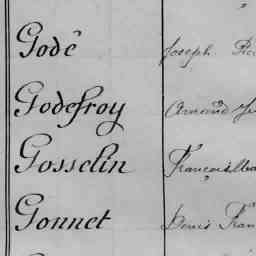 Godé Joseph
Godefroy Amand
Gosselin François
Gonnet Denis Fran